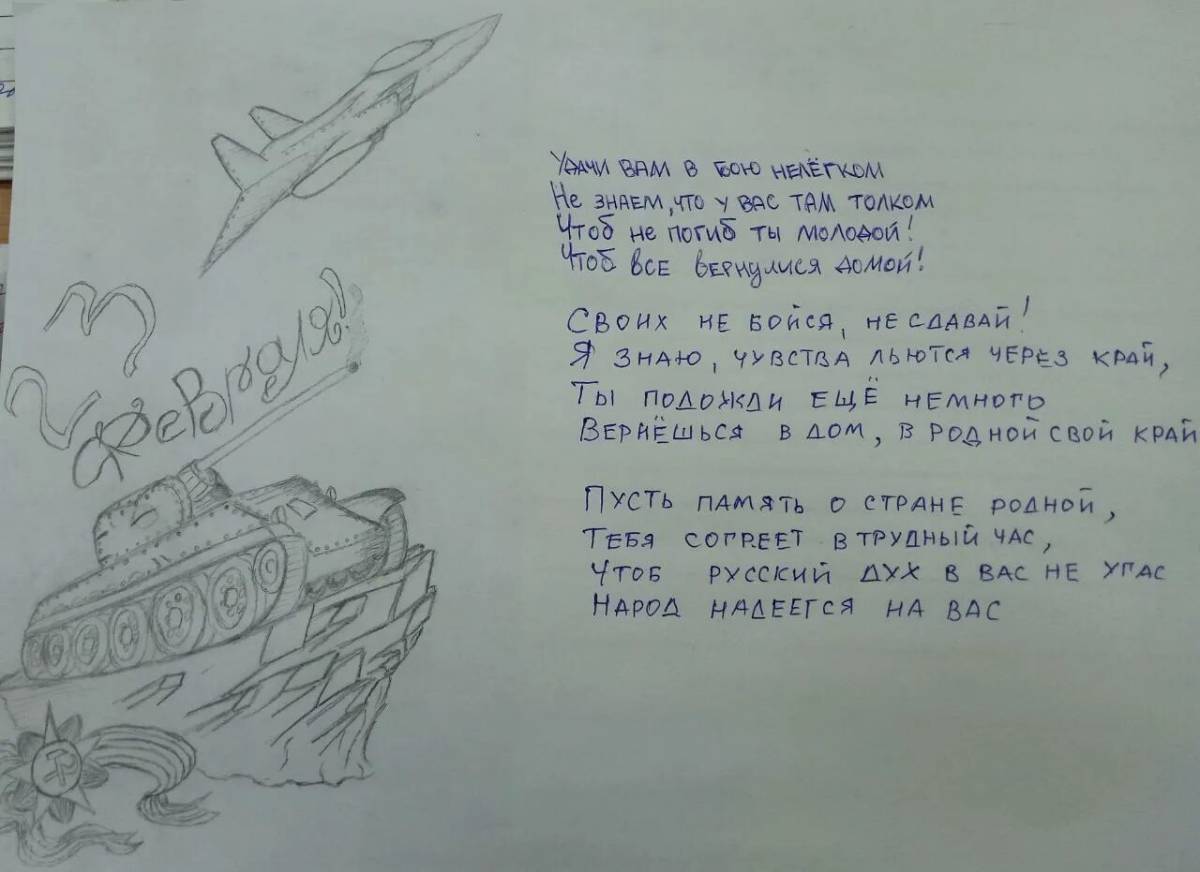 23
февраля!
Удачи вам в бою нелёгком
Не знаем, что у вас там толком
Чтоб не погиб ты молодой!
Чтоб все вернулися домой!
Своих не бойся, не сдавай!
Я знаю, чувства льются через край,
Ты подожди ещё немного
Вернёшься в дом, в родной свой край
Пусть память о стране родной,
Тебя согреет в трудный час,
Чтоб русский дух в вас не угас
Народ надеется на вас